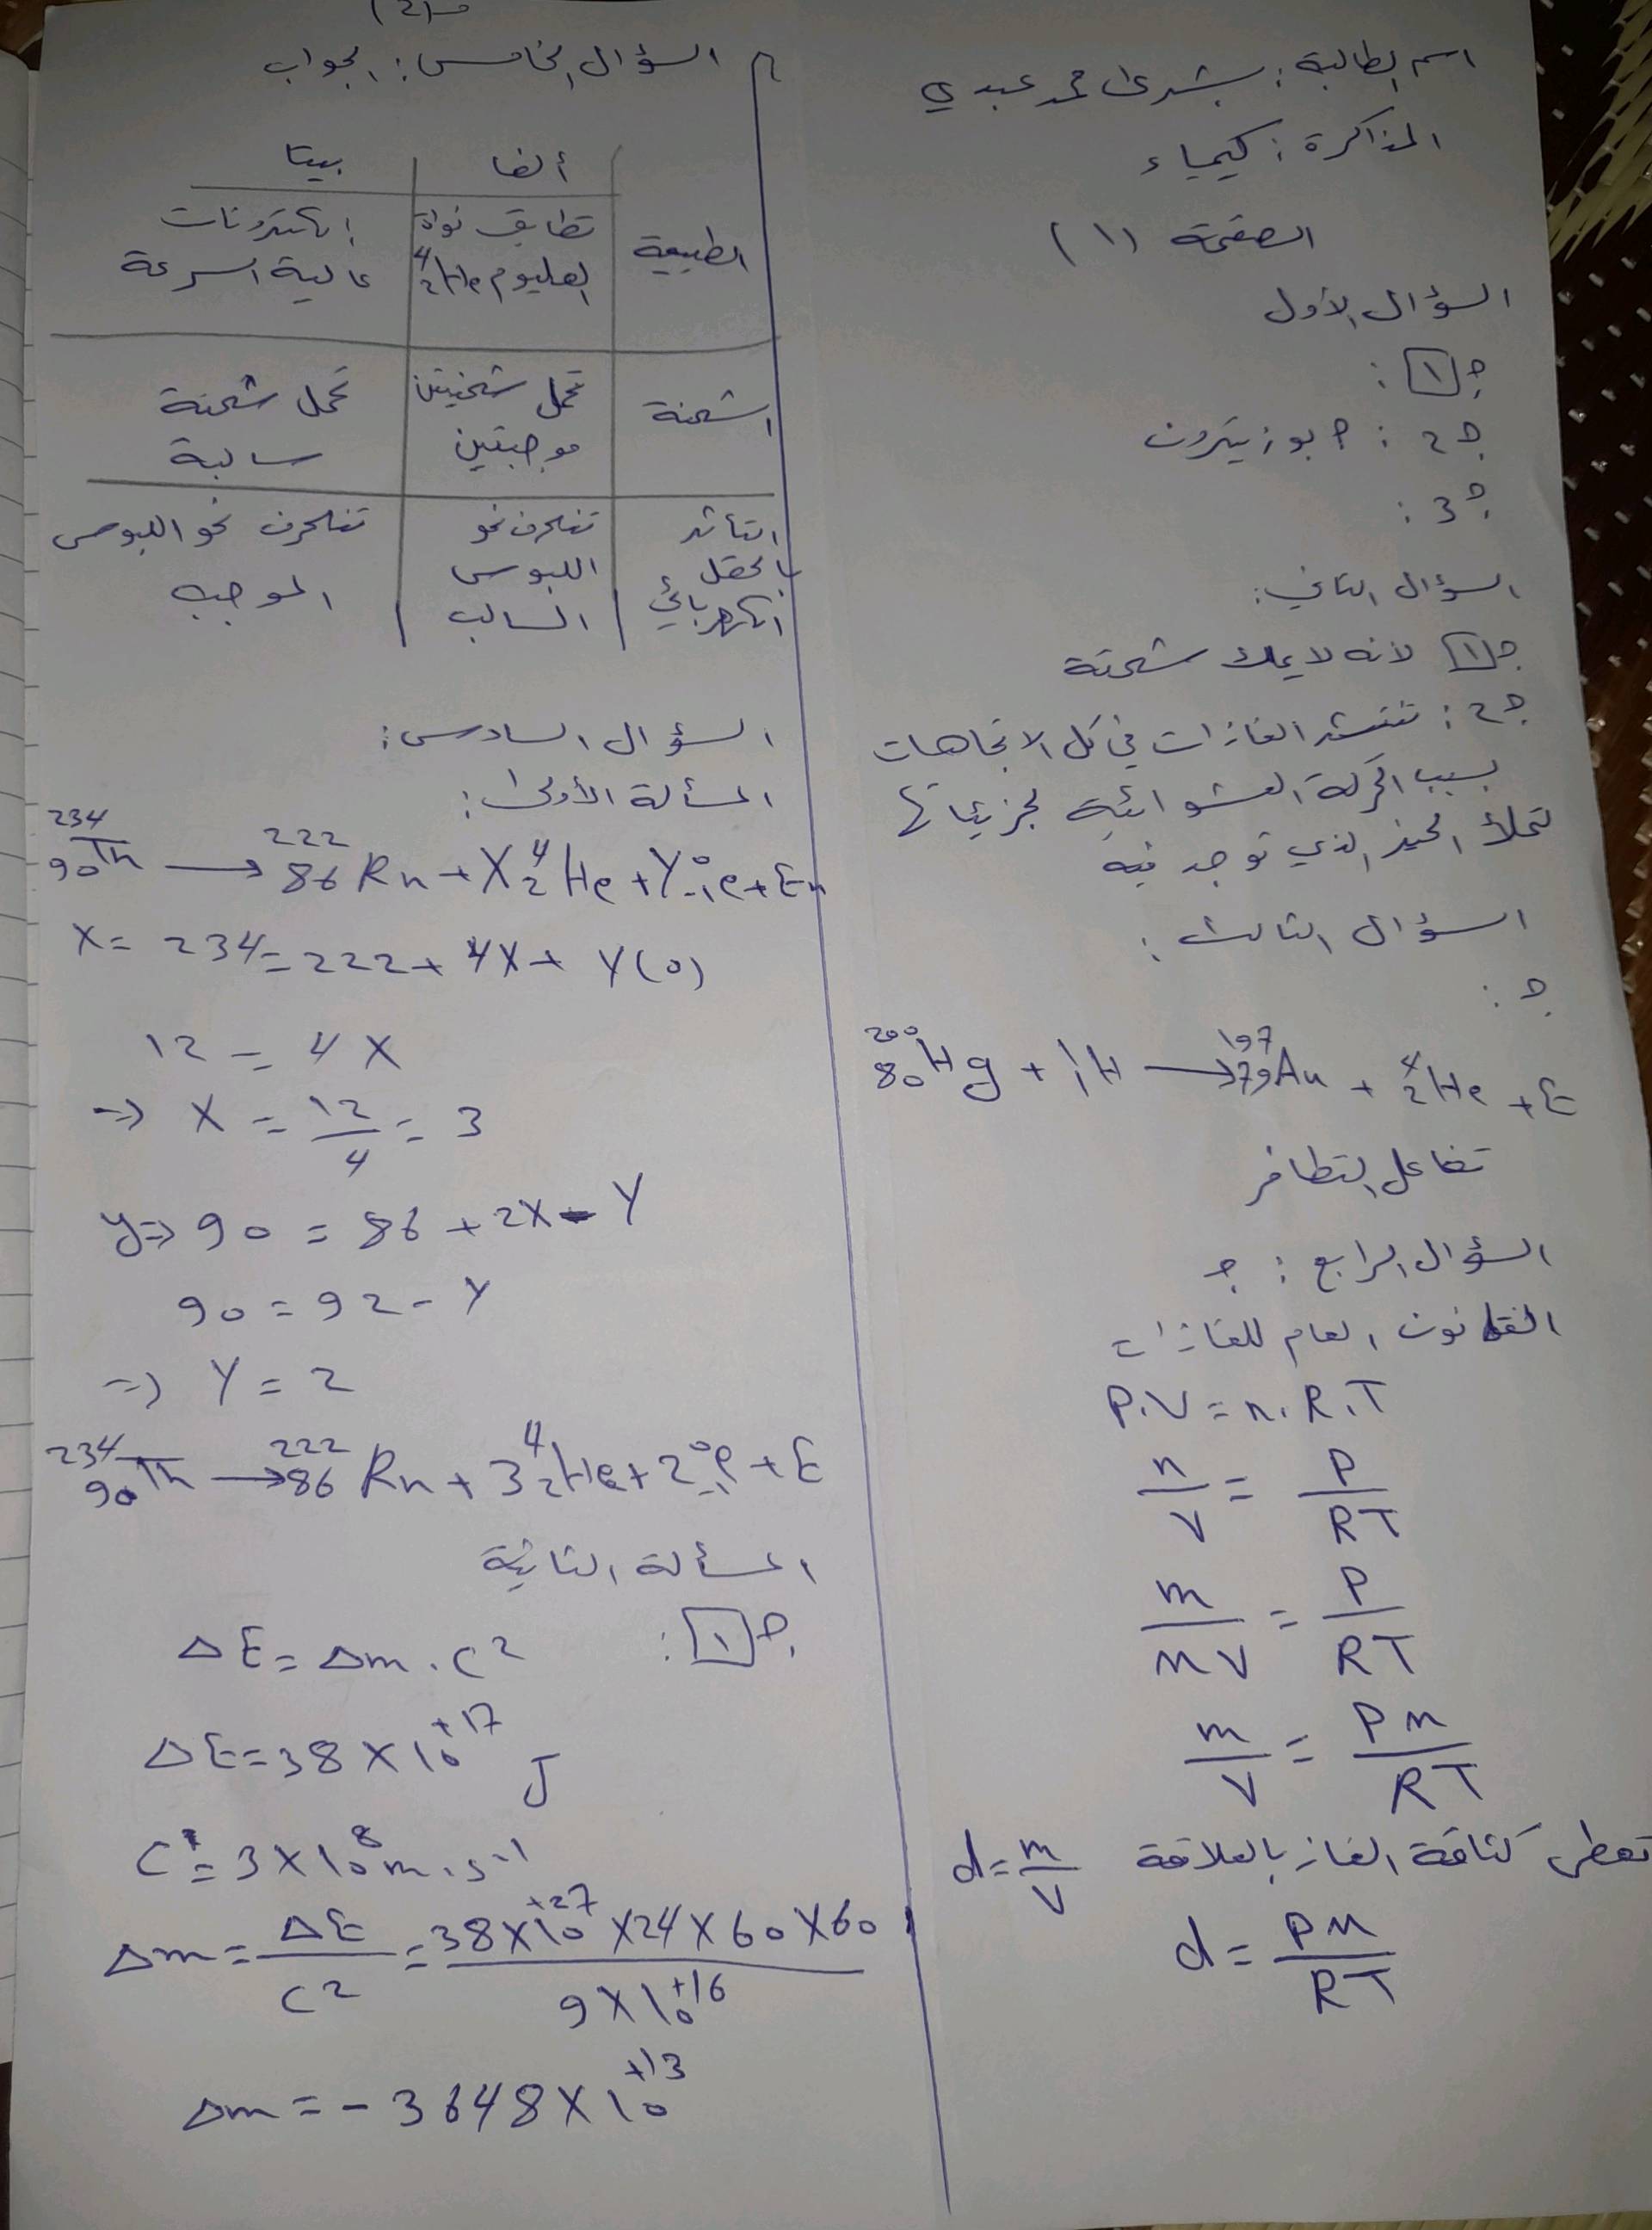 اسم الطالبة: بشرى محمد عبدي
المذاكرة: كيمياء
الصفحة (١)
السؤال الأول
ج١:
ج2: ج بوزيترون
ج3:
السؤال الثاني:
ج١ لانه لا يملك شحنة
ج2: تنتشر الغازات في كل الاتجاهات
بسبب الحركة العشوائية لجزيئاتها
لتملأ الحيز الذي توجد فيه
السؤال الثالث:
ج:
²⁰⁰₈₀Hg + ¹₁H → ¹⁹⁷₇₉Au + ⁴₂He + E
تفاعل التطافر
السؤال الرابع: ج
القانون العام للغازات
P.V = n.R.T
n/V = P/RT
m/MV = P/RT
m/V = PM/RT
تعطى كثافة الغاز بالعلاقة d = m/V
d = PM/RT
(2)
السؤال الخامس: الجواب
ألفا بيتا
الطبيعة تطابق نواة الهليوم ⁴₂He الكترونات عالية السرعة
الشحنة تحمل شحنيتين موجبتين تحمل شحنة سالبة
التأثر بالحقل الكهربائي تنحرف نحو اللبوس السالب تنحرف نحو اللبوس الموجب
السؤال السادس:
المسألة الأولى:
²³⁴₉₀Th → ²²²₈₆Rn + X⁴₂He + Y⁰₋₁e + En
X = 234 = 222 + 4X + Y(0)
12 = 4X
⇒ X = 12/4 = 3
y ⇒ 90 = 86 + 2X - Y
90 = 92 - Y
⇒ Y = 2
²³⁴₉₀Th → ²²²₈₆Rn + 3⁴₂He + 2⁰₋₁e + E
المسألة الثانية
ج١:
ΔE = Δm . C²
ΔE = 38 × 10⁺¹⁷ J
C = 3 × 10⁸ m.s⁻¹
Δm = ΔE/C² = 38 × 10⁺²⁷ × 24 × 60 × 60 / 9 × 10⁺¹⁶
Δm = - 3648 × 10⁺¹³